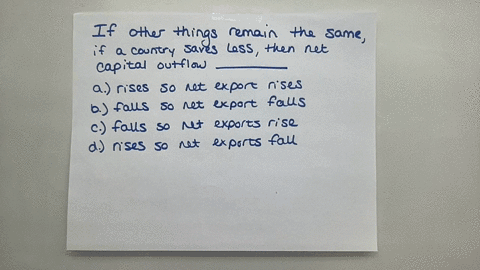 If other things remain the same,
if a country saves less, then net
capital outflow ________
a.) rises so net export rises
b.) falls so net export falls
c.) falls so net exports rise
d.) rises so net exports fall